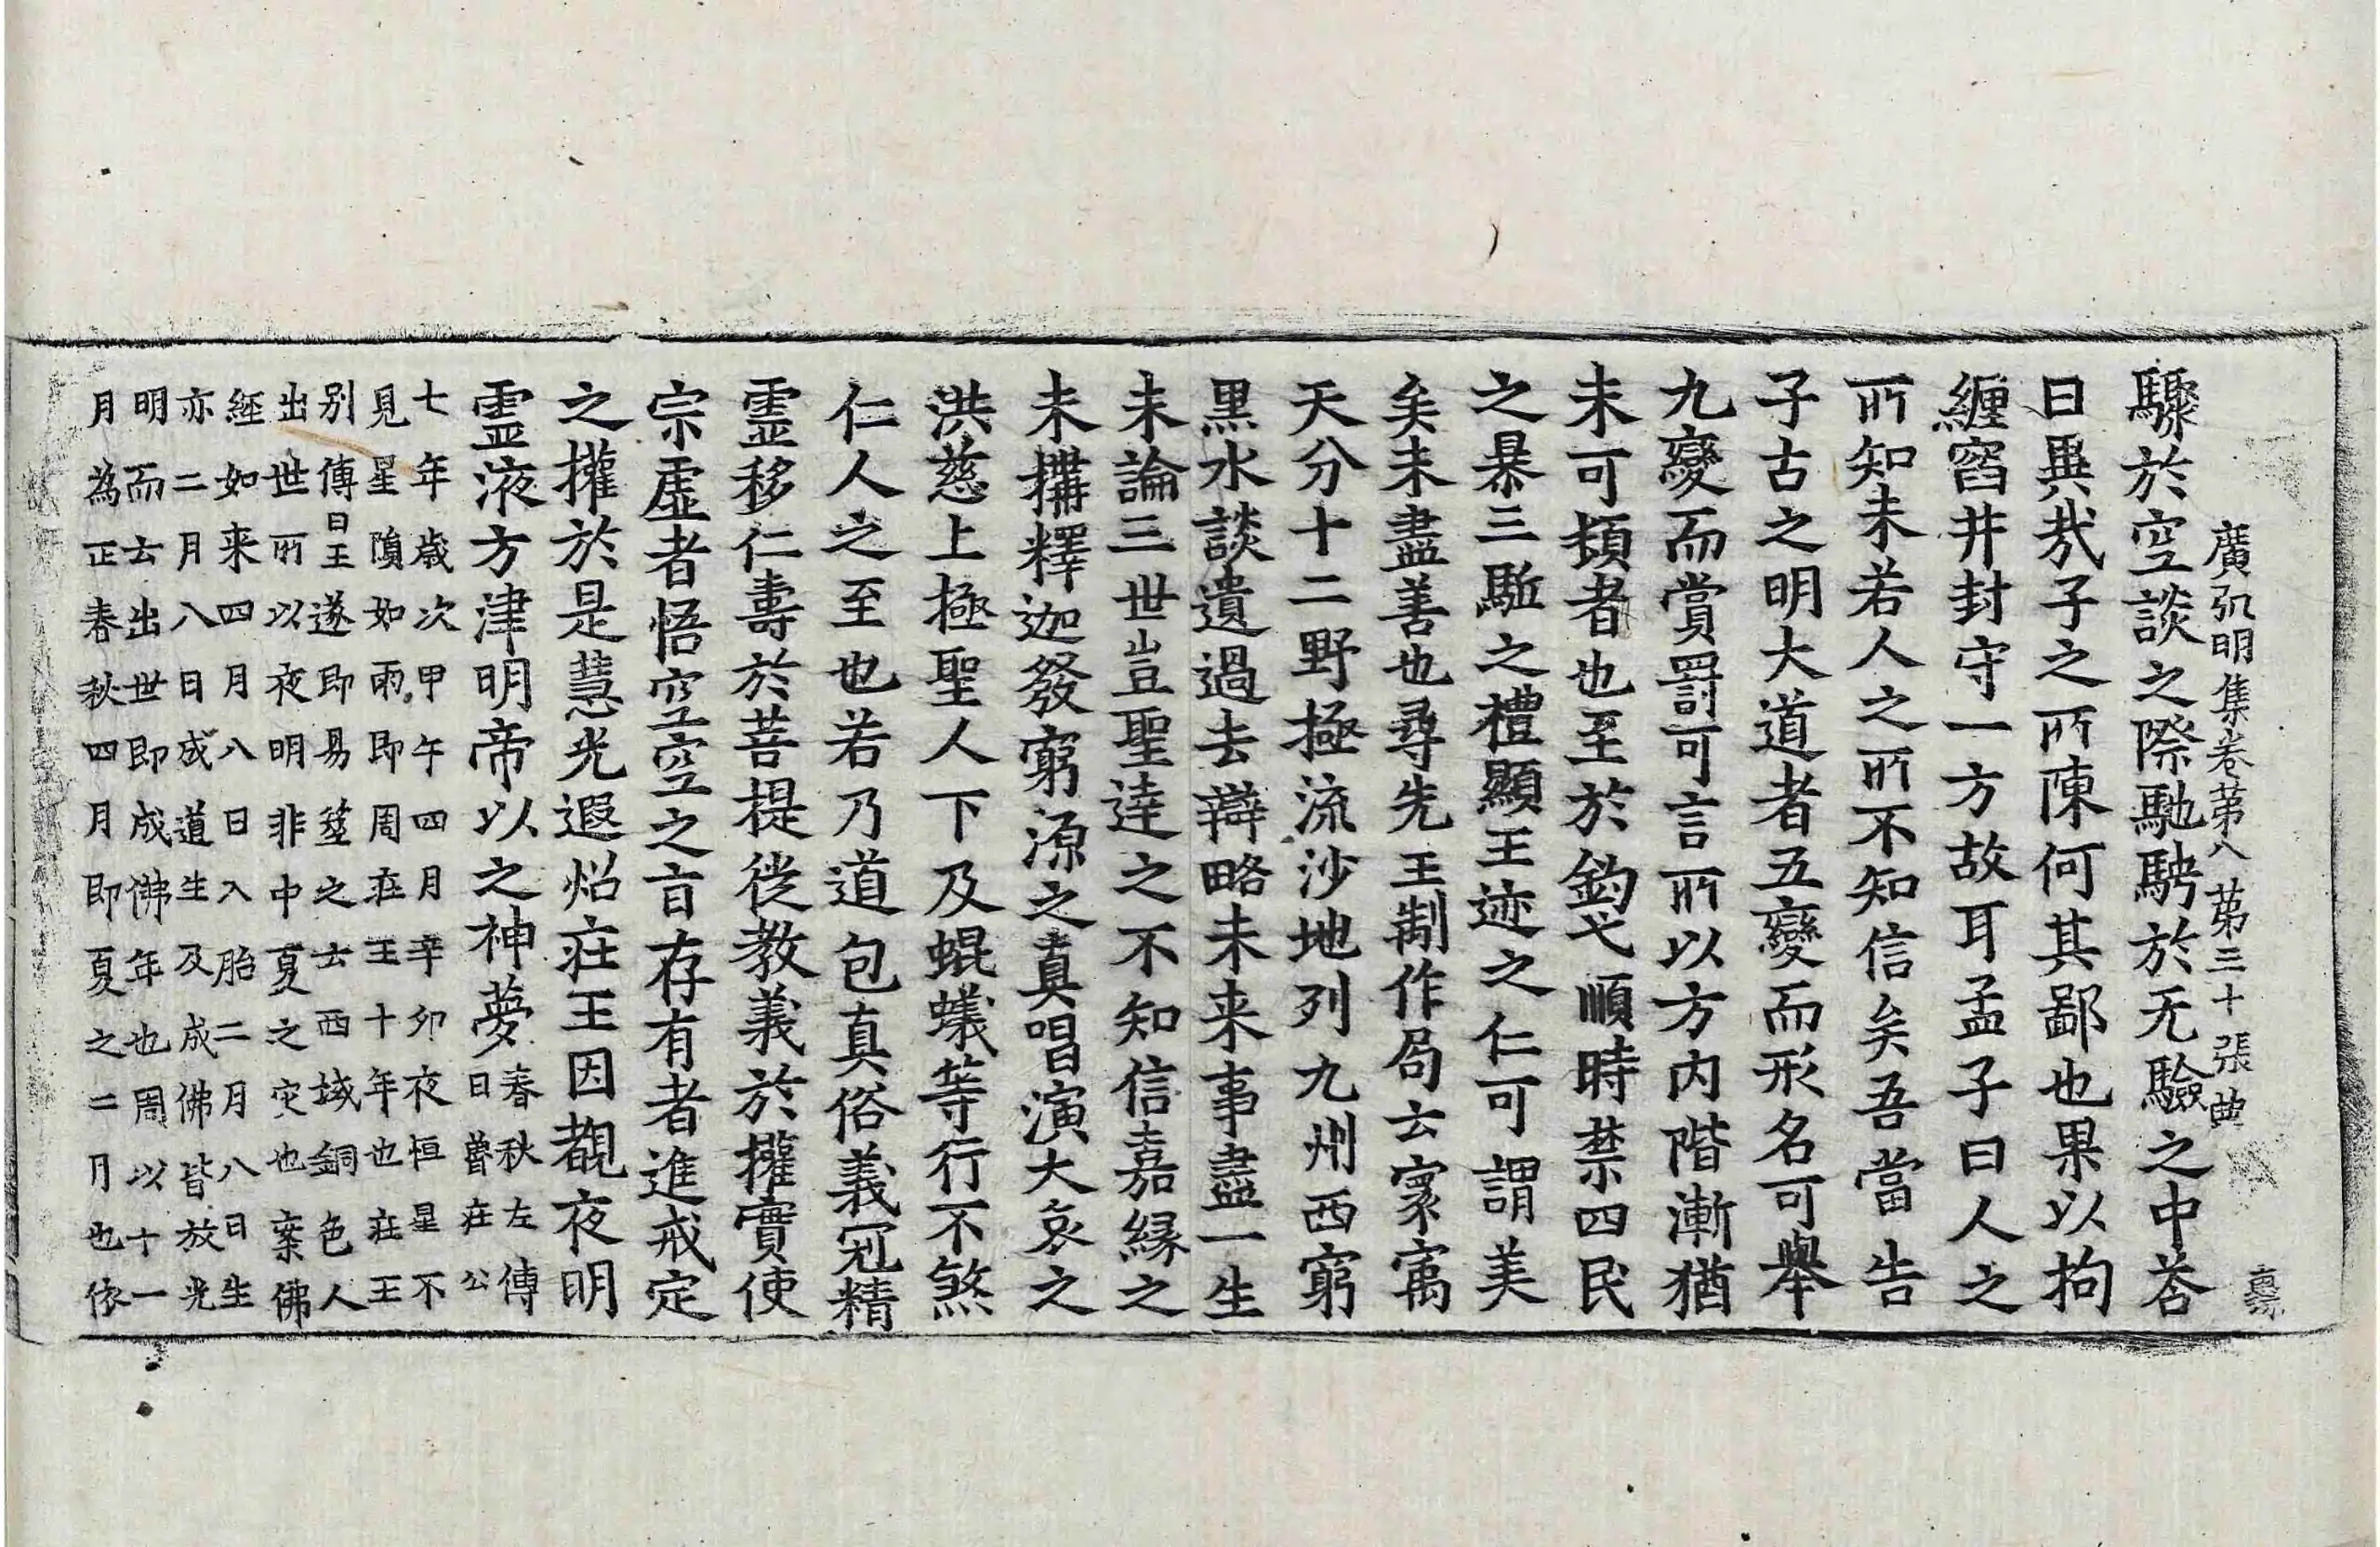 廣弘明集卷第八 第三十張 典
驟於空談之際馳騁於无驗之中荅
曰異㦲子之所陳何其鄙也果以拘
纏窞井封守一方故耳孟子曰人之
所知未若人之所不知信矣吾當告
子古之明大道者五變而形名可舉
九變而賞罰可言所以方內階漸猶
未可頓者也至於釣弋順時禁四民
之暴三驅之禮顯王迹之仁可謂美
矣未盡善也尋先王制作局云寰㝢
天分十二野極流沙地列九州西窮
黑水談遺過去辯略未来事盡一生
未論三世豈聖達之不知信嘉緣之
未搆釋迦發窮源之真唱演大哀之
洪慈上極聖人下及蜫蟻等行不煞
仁人之至也若乃道包真俗義冠精
霊移仁壽於菩提徙教義於權實使
宗虛者悟空空之旨存有者進戒定
之權於是慧光遐炤莊王因覩夜明
霊液方津明帝以之神夢春秋左傳
日魯莊公
七年歲次甲午四月辛卯夜恒星不
見星隕如雨即周莊王十年也莊王
别傳曰王遂即易筮之云西域銅色人
出世所以夜明非中夏之灾也案佛
經如来四月八日入胎二月八日生
亦二月八日成道生及成佛皆放光
明而云出世即成佛年也周以十一
月為正春秋四月即夏之二月也依